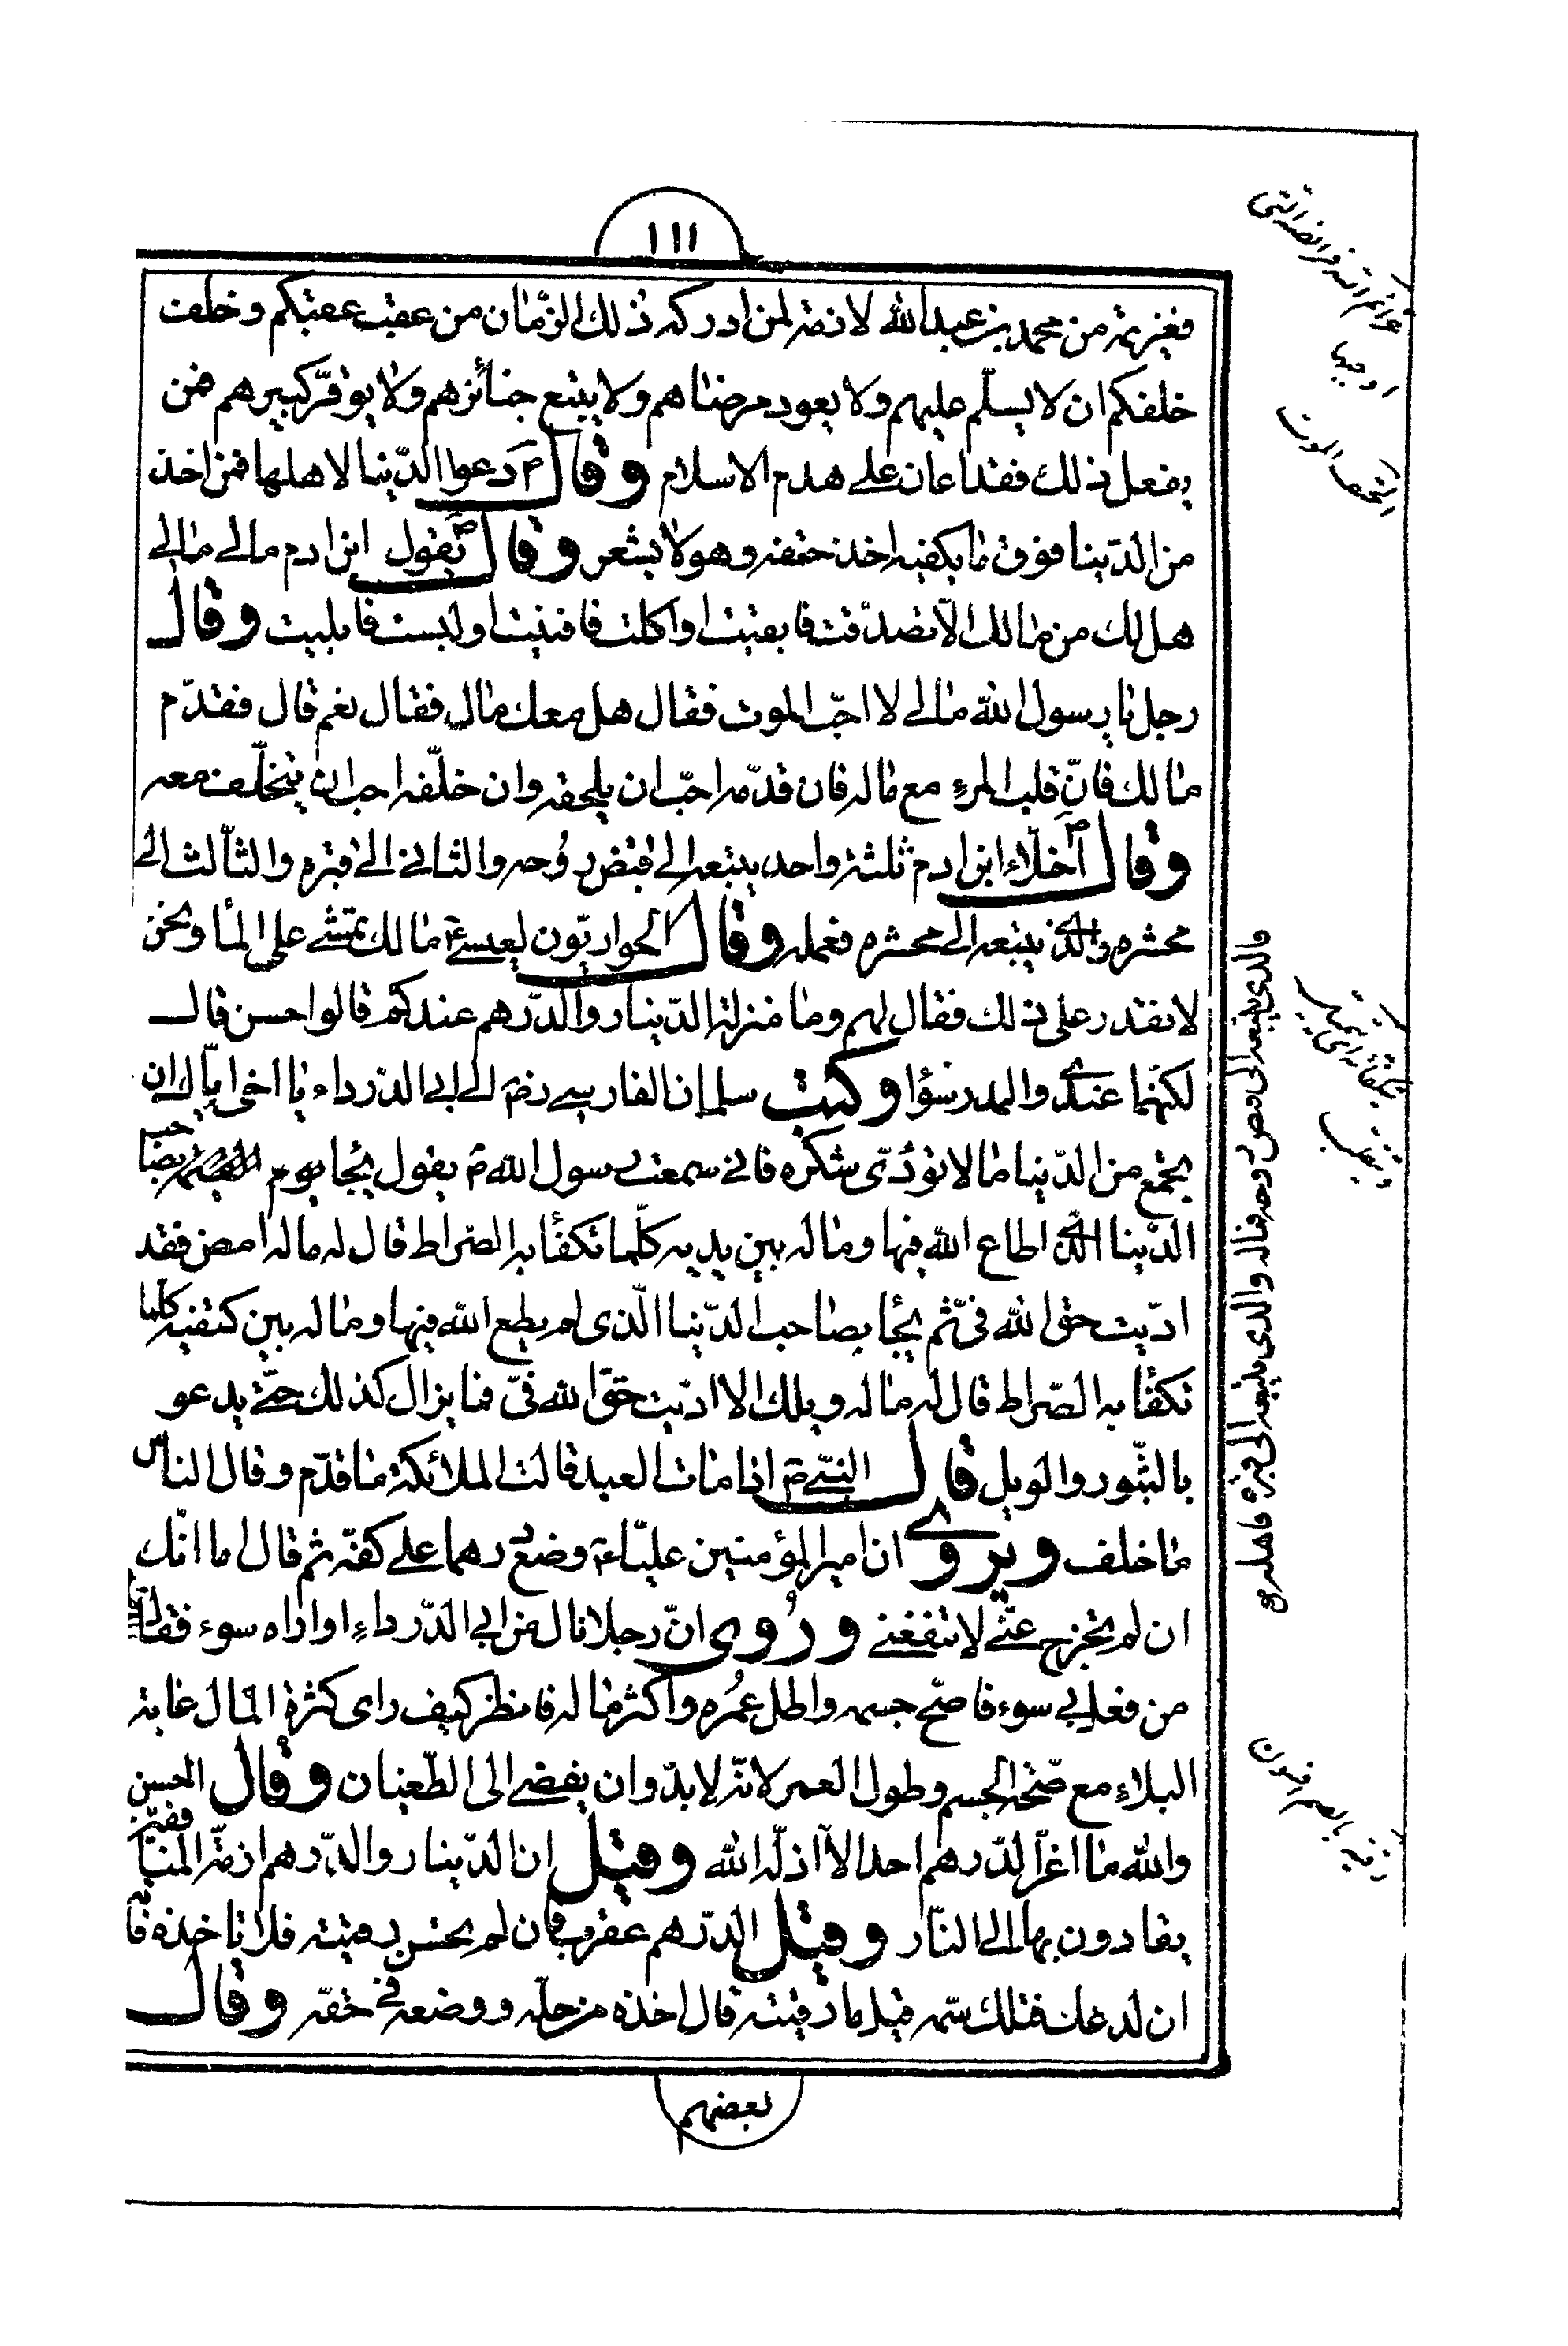 ١١١
فعزيمة من محمد بن عبدالله لازمة لمن ادركه ذلك الزّمان من عقب عقبكم و خلف
خلفكم ان لا يسلّم عليهم ولا يعود مرضاهم ولا يتبع جنائزهم ولا يوقّر كبيرهم فمن
يفعل ذلك فقد اعان على هدم الاسلام وقال ص دعوا الدّنيا لاهلها فمن اخذ
من الدّنيا فوق ما يكفيه اخذ حتفه وهو لا يشعر وقال ص يقول ابن ادم مالي مالي
هل لك من مالك الّا تصدّقت فابقيت او اكلت فافنيت او لبست فابليت وقال
رجل يا رسول الله مالي لا احبّ الموت فقال هل معك مال فقال نعم قال فقدّم
مالك فانّ قلب المرء مع ماله فان قدّمه احبّ ان يلحقه وان خلّفه احب ان يتخلّف معه
وقال ص اخلّاء ابن ادم ثلثة واحد يتبعه الى قبض روحه والثاني الى قبره والثالث الى
محشره والذي يتبعه الى محشره فعمله وقال الحواريّون لعيسى ع مالك تمشى على الماء ونحن
لا نقدر على ذلك فقال لهم وما منزلة الدّينار والدّرهم عندكم قالوا حسن قال
لكنّهما عندى والمدر سؤا وكتب سلمان الفارسي رض الى ابي الدّرداء يا اخى ايّاك ان
تجمع من الدّنيا ما لا تؤدّى شكره فاني سمعت رسول الله ص يقول يجا يوم بصاحب
الدّنيا الذي اطاع الله فيها وماله بين يديه كلّما تكفّأ به الصّراط قال له ماله امض فقد
ادّيت حقّ الله فىّ ثم يجا بصاحب الدّنيا الّذى لم يطع الله فيها وماله بين كتفيه كلّما
تكفّأ به الصّراط قال له ماله ويلك الا ادّيت حقّ الله فىّ فما يزال كذلك حتّى يدعو
بالثّبور والويل قال النبيّ ص اذا مات العبد قالت الملائكة ما قدّم وقال الناس
ما خلف ويروى ان امير المؤمنين عليّا ع وضع درهما على كفّه ثم قال اما انّك
ان لم تخرج عنّى لا تنفعنى وروى انّ رجلا نال من ابي الدّرداء او اراه سوء فقال
من فعل بي سوء فاصحّ جسمه واطل عمره واكثر ماله فانظر كيف راى كثرة المال غاية
البلاء مع صحّة الجسم وطول العمر لانّه لا بدّ وان يفضى الى الطّغيان وقال الحسن
والله ما اعزّ الدّرهم احد الّا اذلّه الله وقيل ان الدّينار والدّرهم ازمّة المنا فقين
يقادون بها الى النّار وقيل الدّرهم عقرب فان لم يحسن رقيته فلا تاخذه فانّه
ان لدغك فتلك سمّه قيل ما رقيته قال اخذه من حلّه ووضعه في حقّه وقال
بعضهم
والذى يتبعه الى قبض روحه فماله والذى يتبعه الى قبره فاهله